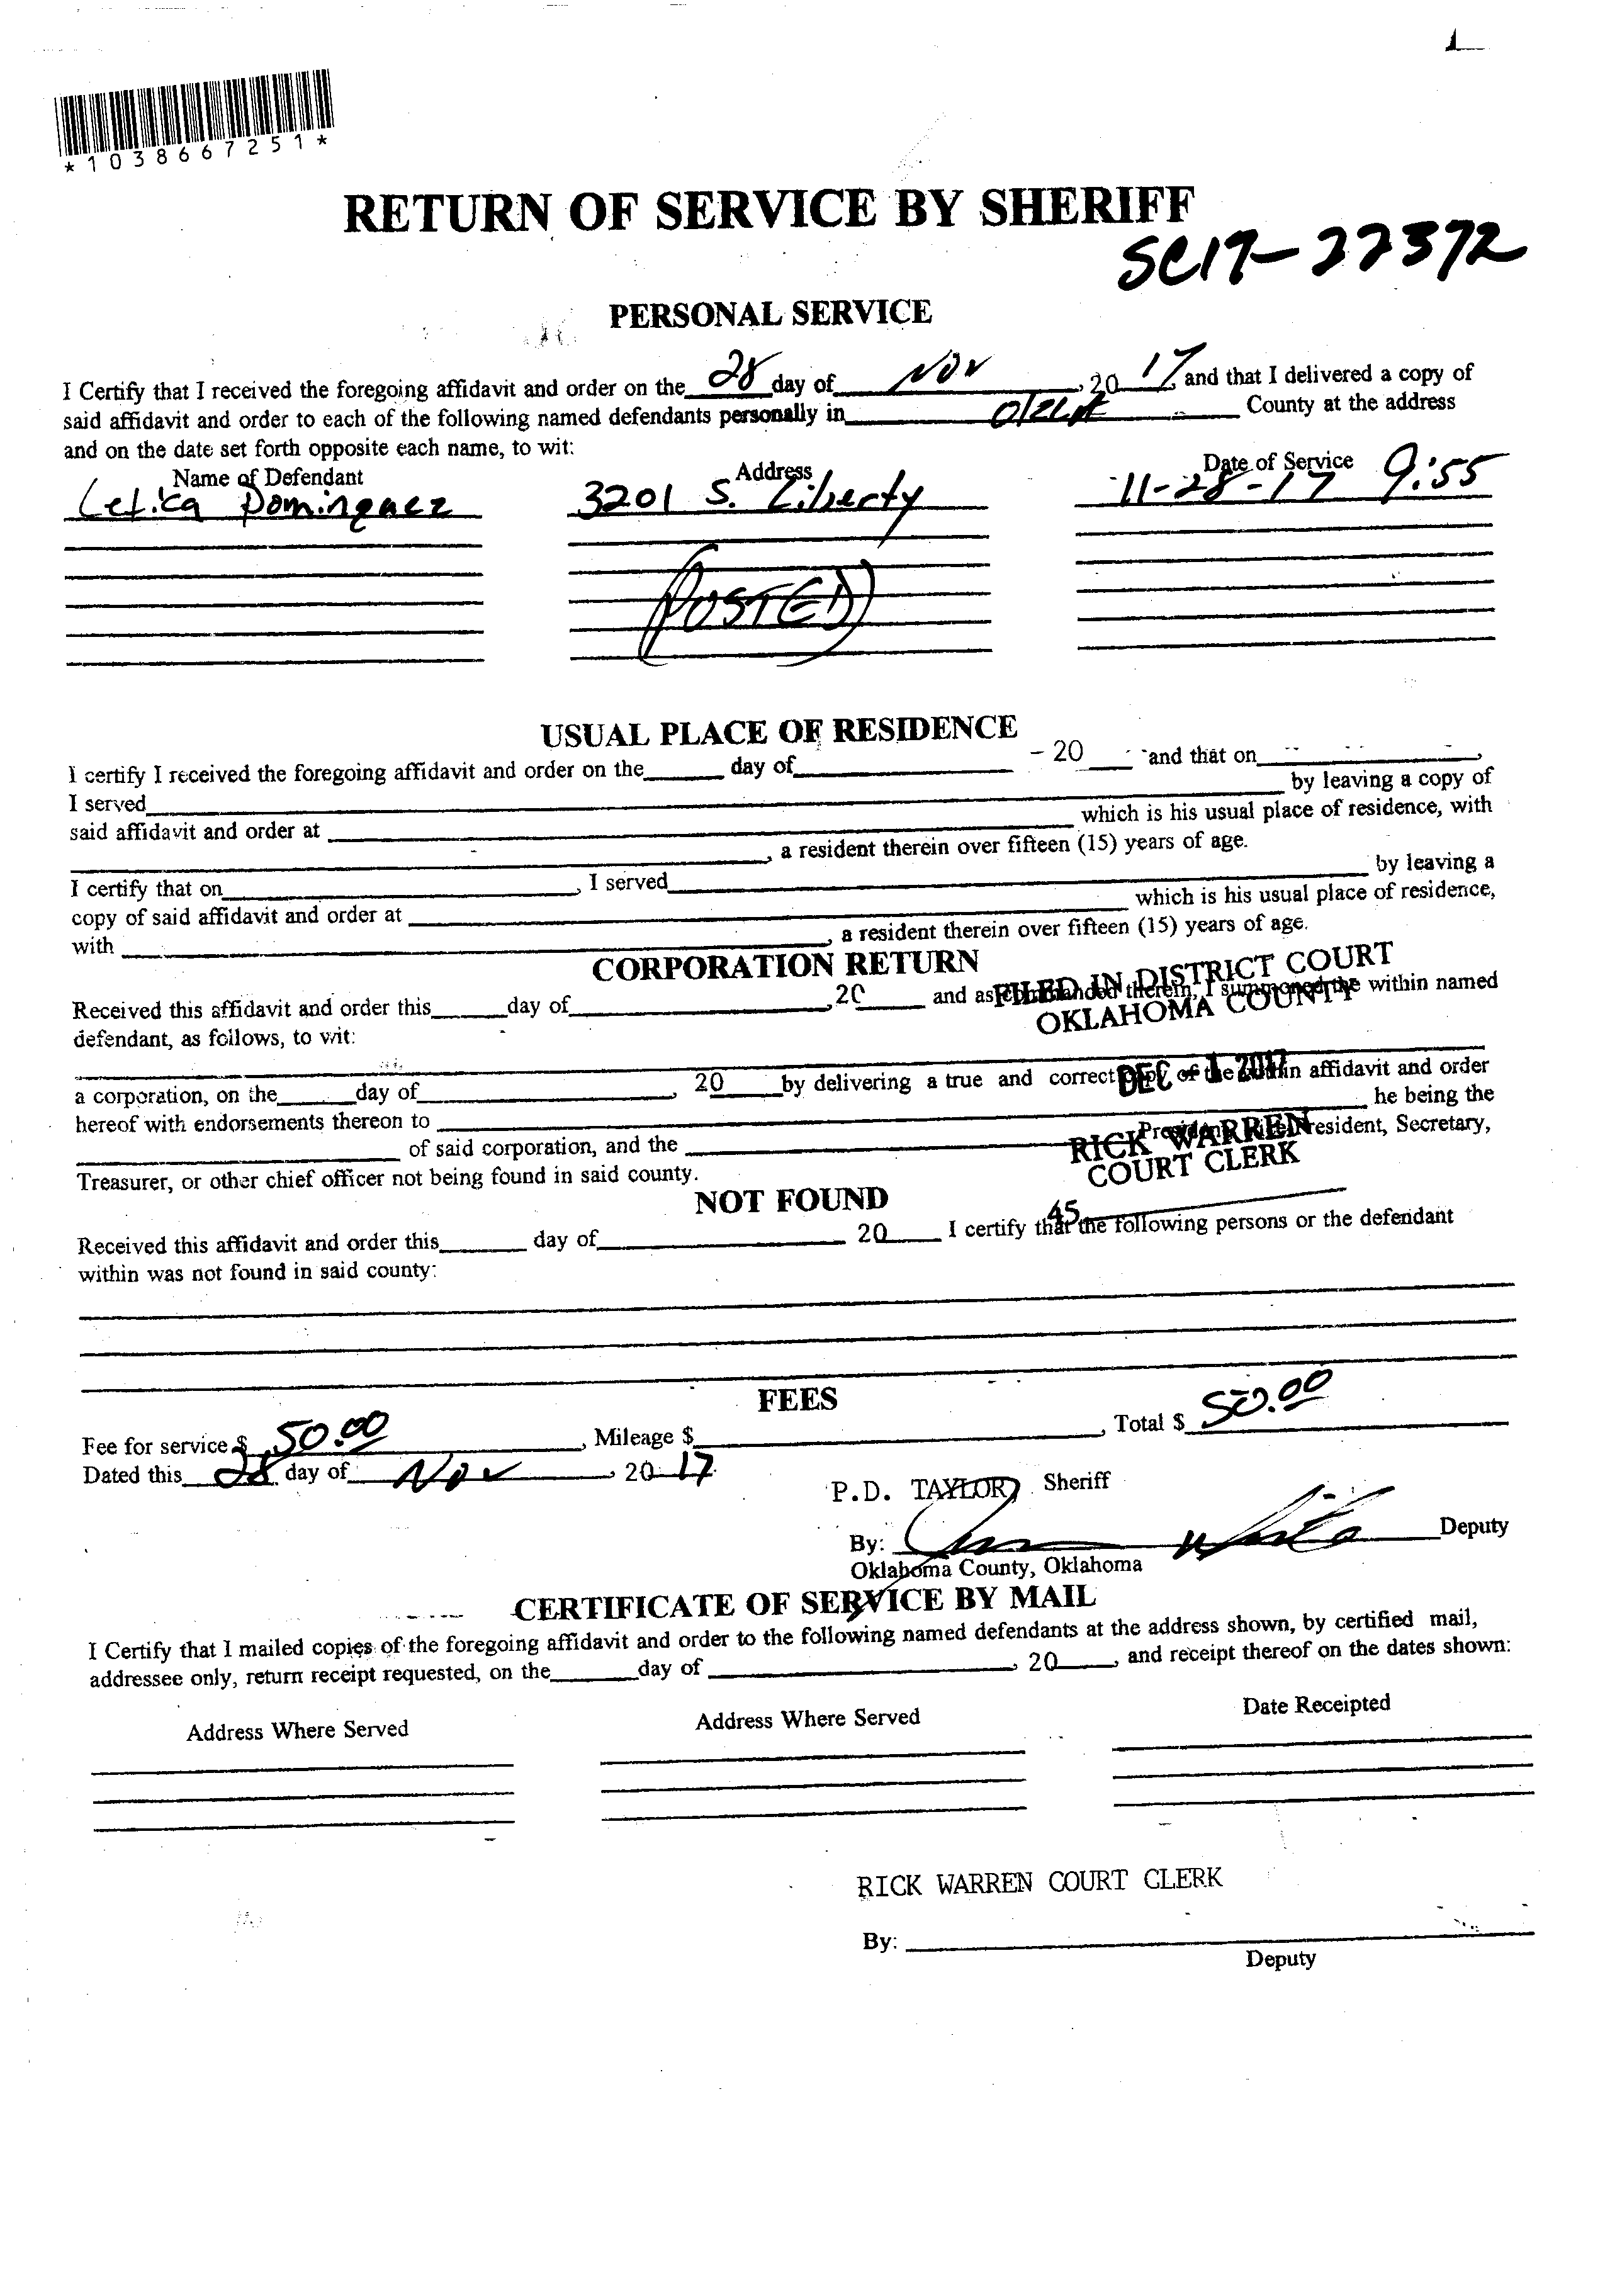 1
*1038667251*
RETURN OF SERVICE BY SHERIFF
SC17-22372
PERSONAL SERVICE
I Certify that I received the foregoing affidavit and order on the 28 day of Nov, 20 17, and that I delivered a copy of
said affidavit and order to each of the following named defendants personally in County at the address
and on the date set forth opposite each name, to wit:
Name of Defendant Address Date of Service
Letica Dominguez 3201 S. Liberty 11-28-17 9:55
POSTED
USUAL PLACE OF RESIDENCE
I certify I received the foregoing affidavit and order on the day of 20 and that on ,
I served by leaving a copy of
said affidavit and order at which is his usual place of residence, with
, a resident therein over fifteen (15) years of age.
I certify that on , I served by leaving a
copy of said affidavit and order at which is his usual place of residence,
with , a resident therein over fifteen (15) years of age.
CORPORATION RETURN
FILED IN DISTRICT COURT
OKLAHOMA COUNTY
Received this affidavit and order this day of , 20 and as commanded therein, I summoned the within named
defendant, as follows, to wit:
DEC - 1 2017
a corporation, on the day of , 20 by delivering a true and correct copy of the within affidavit and order
hereof with endorsements thereon to he being the
of said corporation, and the President, Vice President, Secretary,
RICK WARREN
COURT CLERK
Treasurer, or other chief officer not being found in said county.
NOT FOUND
45
Received this affidavit and order this day of 20 I certify that the following persons or the defendant
within was not found in said county:
FEES
Fee for service $ 50.00 , Mileage $ , Total $ 50.00
Dated this 28 day of Nov , 20 17
P.D. TAYLOR, Sheriff
By: Deputy
Oklahoma County, Oklahoma
CERTIFICATE OF SERVICE BY MAIL
I Certify that I mailed copies of the foregoing affidavit and order to the following named defendants at the address shown, by certified mail,
addressee only, return receipt requested, on the day of , 20 , and receipt thereof on the dates shown:
Address Where Served Address Where Served Date Receipted
RICK WARREN COURT CLERK
By:
Deputy